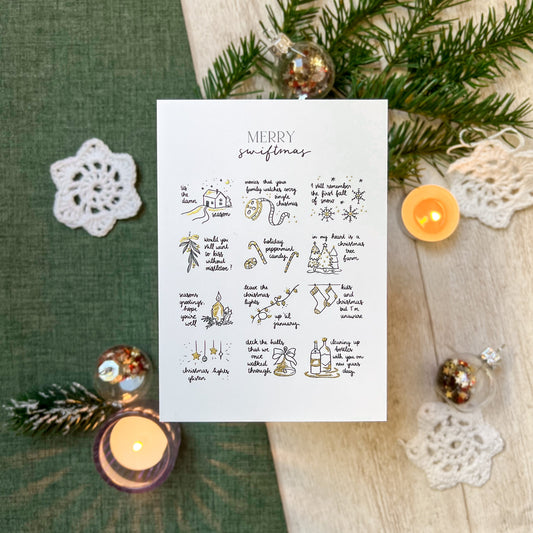 MERRY
swiftmas
'tis
the
damn
season
movies that your
family watches every
single
christmas
I still remember
the first fall
of snow
would you
still want
to kiss
without
mistletoe?
holiday
peppermint
candy
in my heart is a
christmas
tree
farm
seasons
greetings,
hope
you're
well
leave the
christmas
lights
up 'til
january
kids
and
christmas
but I'm
unaware
christmas lights
glisten
deck the halls
that we
once
walked
through
cleaning up
bottles
with you on
new years
day